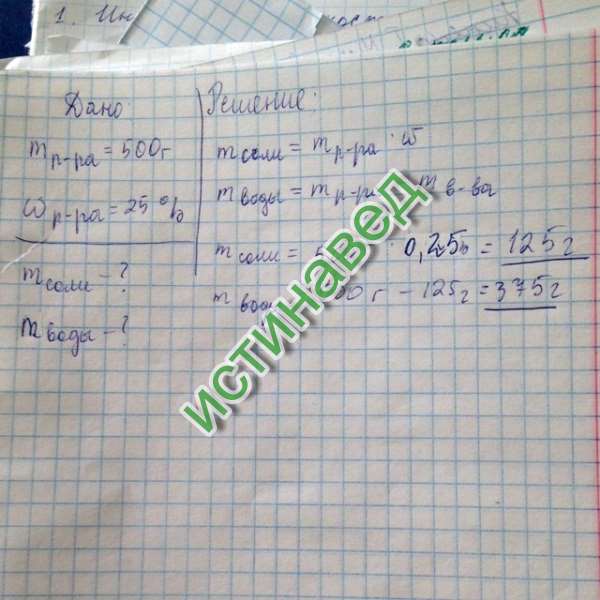 1.
Дано:
m р-ра = 500г
ω р-ра = 25%
m соли - ?
m воды - ?
Решение:
m соли = m р-ра · ω
m воды = m р-ра m в-ва
m соли = 5 · 0,25 = 125г
m воды 00 г - 125г = 375г
ИСТИНАВЕД